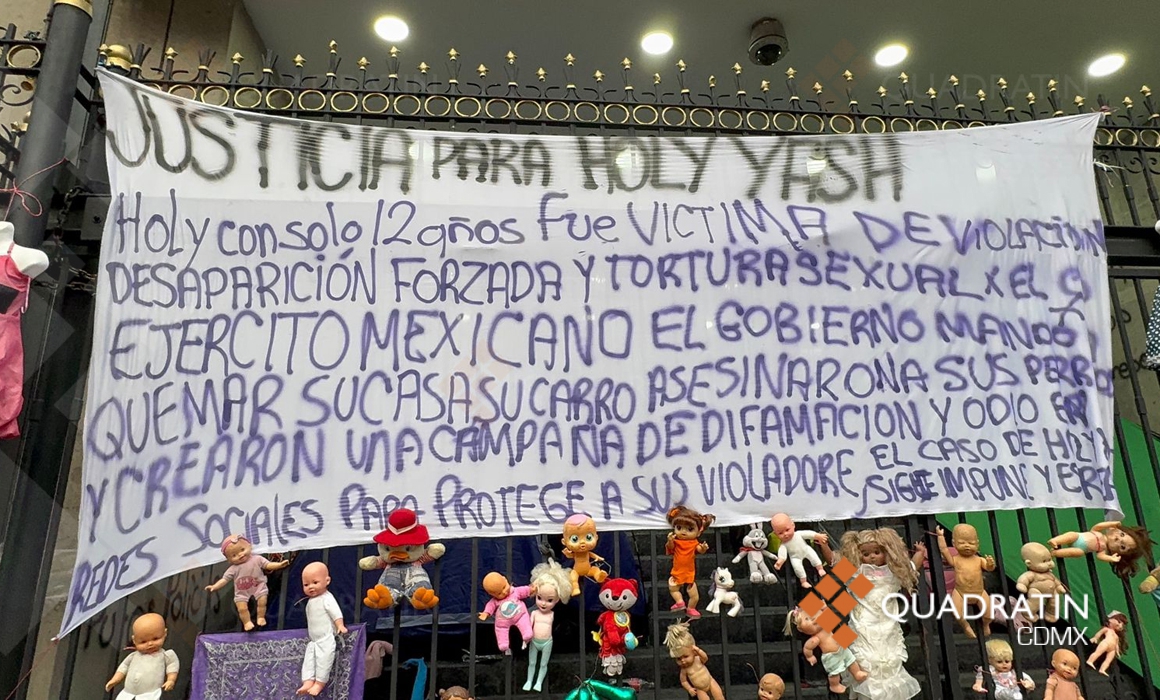 JUSTICIA PARA HOLY YASH
Holy con solo 12 años Fue VICTIMA DE VIOLACIÓN
DESAPARICIÓN FORZADA Y TORTURA SEXUAL X EL
EJERCITO MEXICANO EL GOBIERNO MANDÓ
QUEMAR SU CASA SU CARRO ASESINARON A SUS PERRO
Y CREARON UNA CAMPAÑA DE DIFAMACION Y ODIO EN
REDES SOCIALES PARA PROTEGE A SUS VIOLADORE EL CASO DE HOLY
SIGUE IMPUNE Y
QUADRATIN
CDMX
QUADRATIN